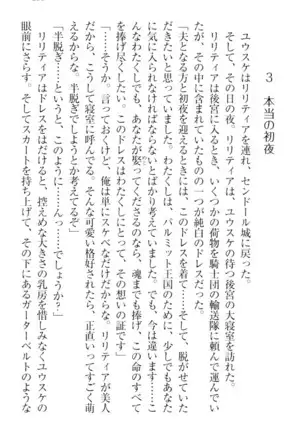 3　本当の初夜
ユウスケはリリティアを連れ、センドール城に戻った。
そして、その日の夜、リリティアは、ユウスケの待つ後宮の大寝室を訪れた。
リリティアは後宮に入るとき、いくつかの荷物を騎士団の輸送隊に頼んで運んでい
たが、その中に含まれていたものの一つが純白のドレスだった。
「夫となる方と初夜を迎えるときには、このドレスを……そして、脱がせていた
だくのだと決めていました。わたくしは、パルミット王国のために、少しでもあなた
に好かれなければならないとばかり考えていました。でも、今は違います……
そんなわたくしでも、あなたが娶ってくださるのなら、魂までも捧げ、この命のすべて
を捧げ尽くしたい。このドレスはわたくしにとって、その想いの証です」
「……そうか。言っておくけど、俺は単にスケベなだけだぞ。リリティアが美人
だから、こうして寝室に呼んでる。そんな可愛い格好されたら、正直いってすごく萌
えるからな。半脱ぎでしようとか考えてるぞ」
「半脱ぎ……というと、このように……んっ……でしょうか？」
リリティアはドレスをはだけると、控えめな大きさの乳房を惜しみなくユウスケの
眼前にさらす。そしてスカートを持ち上げて、その下にあるガーターベルトのような